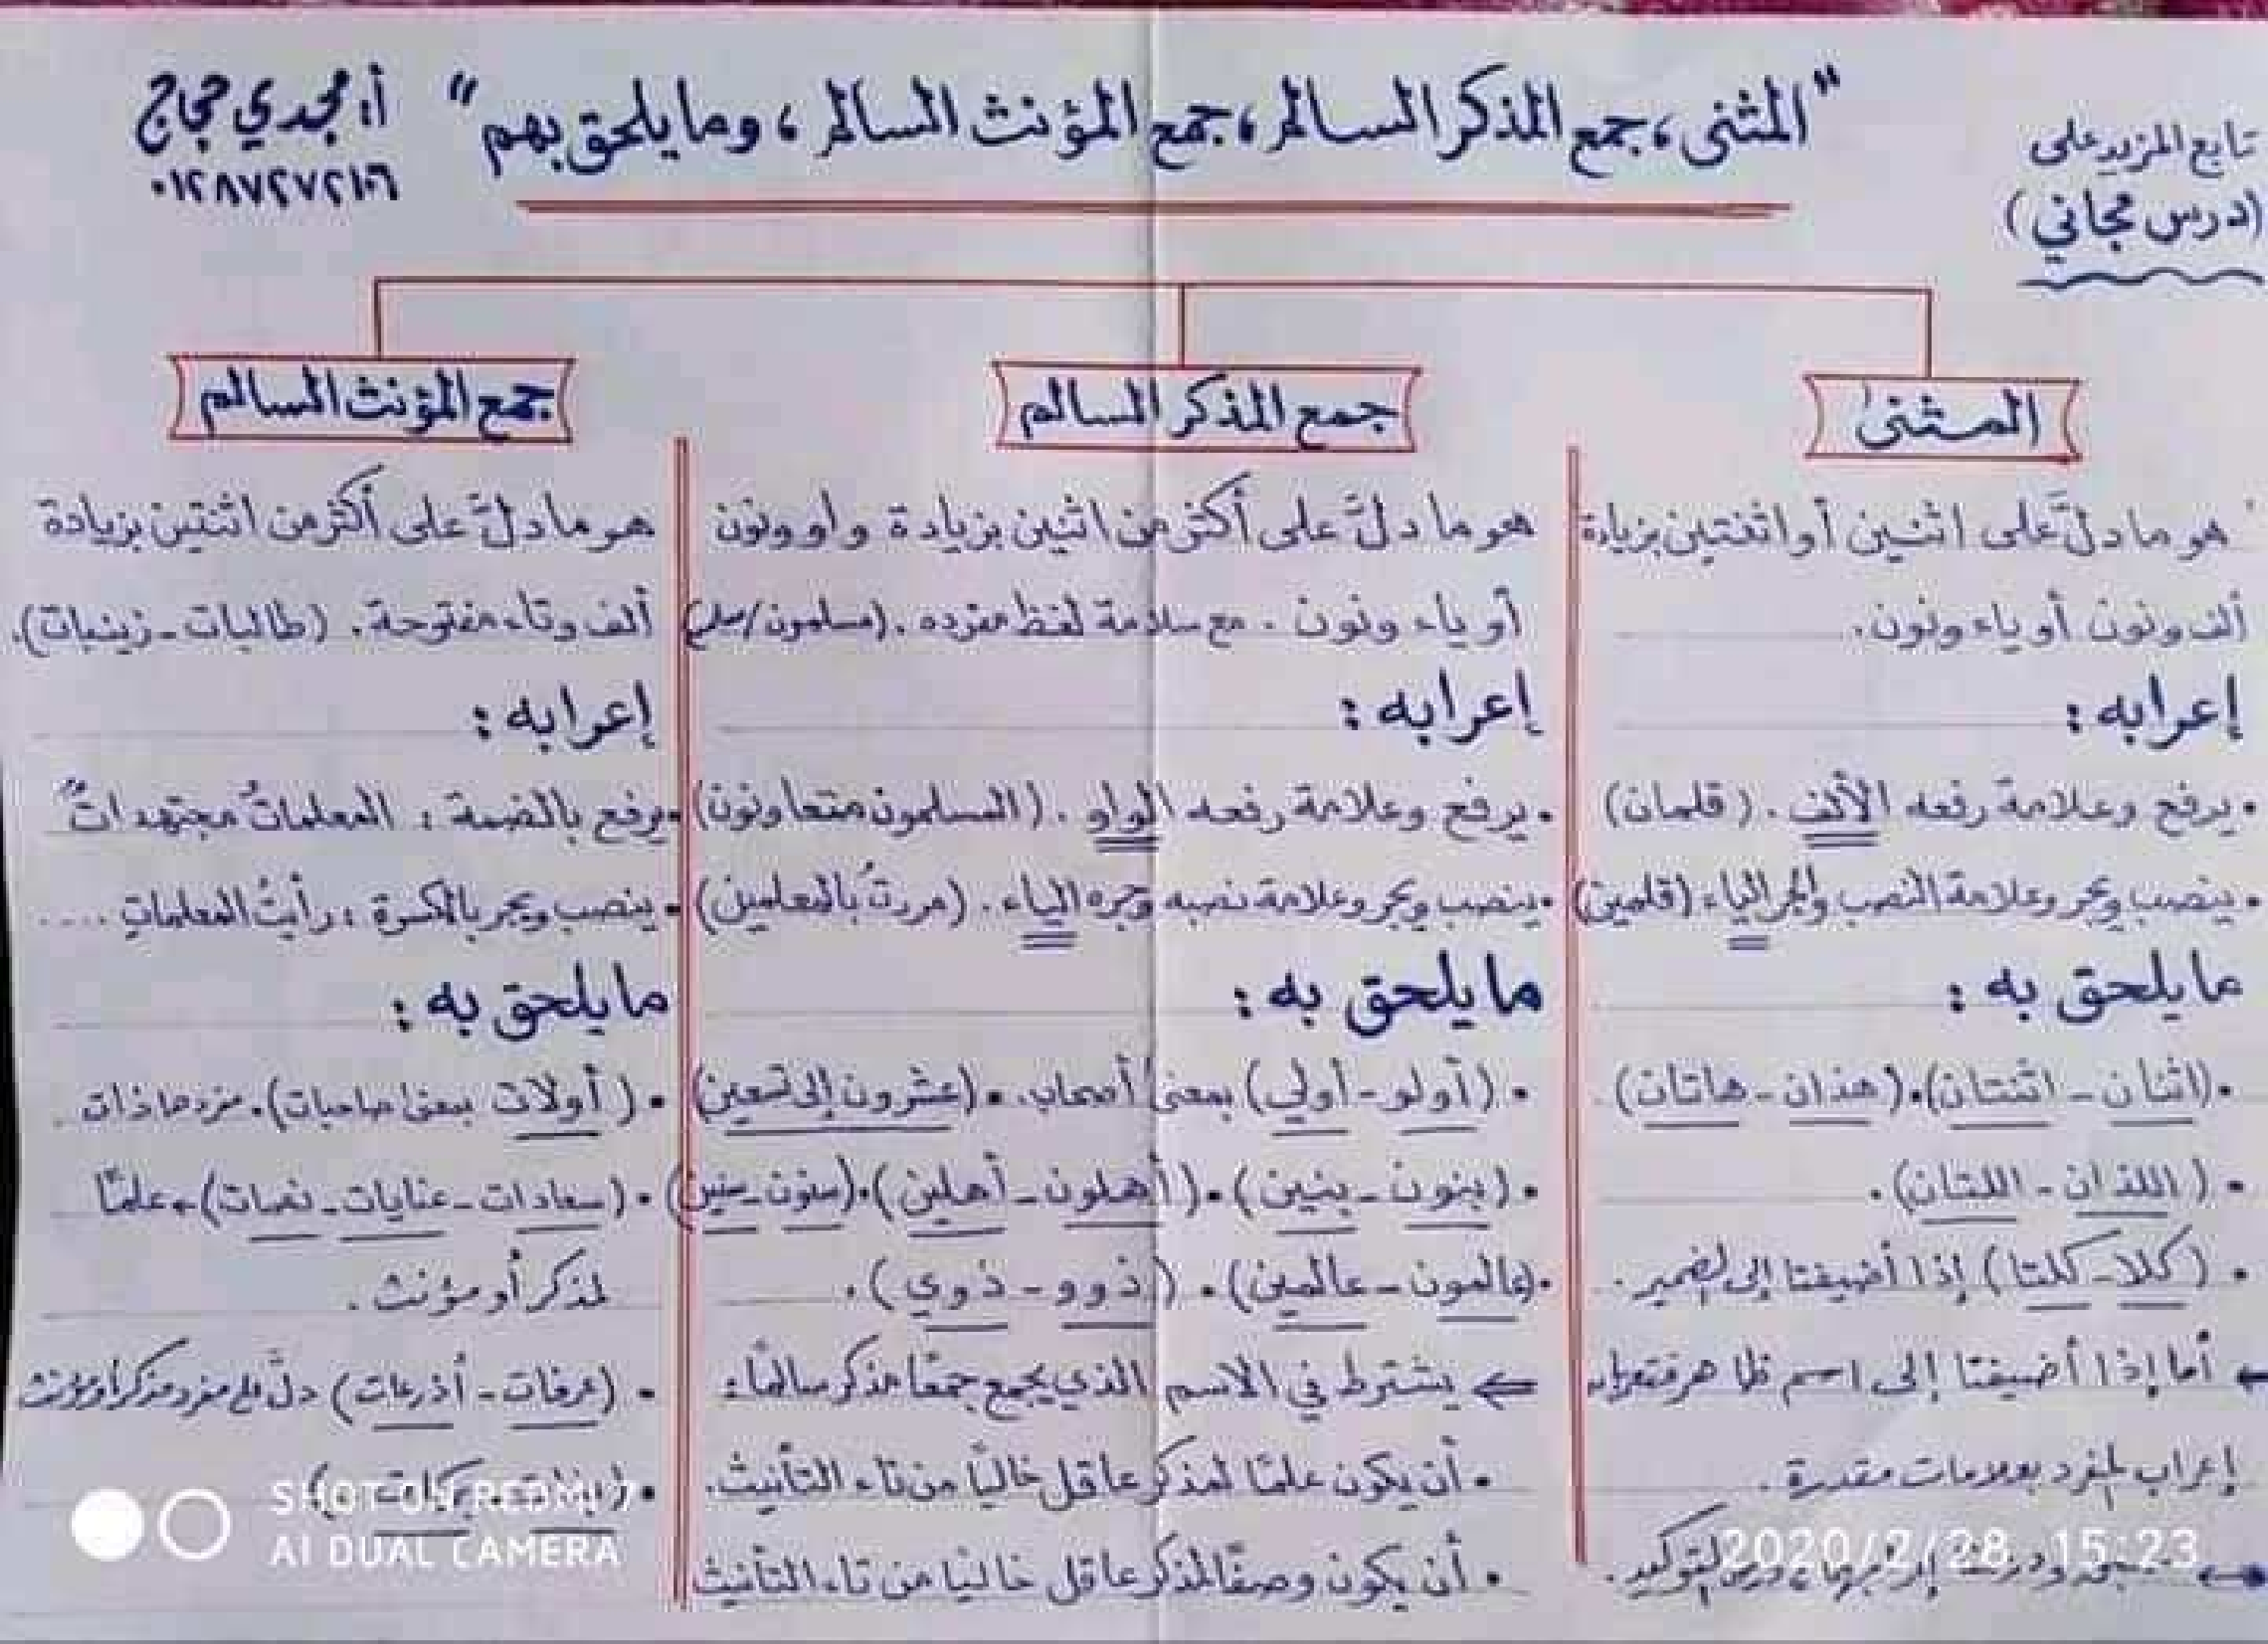 "المثنى، جمع المذكر السالم، جمع المؤنث السالم، وما يلحق بهم"
أ. مجدي حجاج
٠١٢٨٧٢٧٢١٠٦
تابع المزيد على
(درس مجاني)
المثنى
هو ما دلَّ على اثنين أو اثنتين بزيادة
ألف ونون أو ياء ونون.
إعرابه:
• يرفع وعلامة رفعه الألف. (قلمان)
• ينصب ويجر وعلامة النصب والجر الياء (قلمين)
ما يلحق به:
• (اثنان - اثنتان). (هذان - هاتان)
• (اللذان - اللتان).
• (كلا - كلتا) إذا أضيفتا إلى الضمير.
← أما إذا أضيفتا إلى اسم ظاهر فتعربان
إعراب المفرد بعلامات مقدرة.
درس التوكيد.
جمع المذكر السالم
هو ما دلَّ على أكثر من اثنين بزيادة واو ونون
أو ياء ونون. مع سلامة لفظ مفرده. (مسلمون/مسلم)
إعرابه:
• يرفع وعلامة رفعه الواو. (المسلمون متعاونون)
• ينصب ويجر وعلامة نصبه وجره الياء. (مررتُ بالمعلمين)
ما يلحق به:
• (أولو - أولي) بمعنى أصحاب. • (عشرون إلى تسعين)
• (بنون - بنين) • (أهلون - أهلين) • (سنون - سنين)
• (عالمون - عالمين). (ذوو - ذوي).
← يشترط في الاسم الذي يجمع جمعًا مذكر سالمًا:
• أن يكون علمًا لمذكر عاقل خاليًا من تاء التأنيث.
• أن يكون وصفًا لمذكر عاقل خاليًا من تاء التأنيث
جمع المؤنث السالم
هو ما دلَّ على أكثر من اثنتين بزيادة
ألف وتاء مفتوحة. (طالبات - زينبات).
إعرابه:
• يرفع بالضمة: المعلماتُ مجتهداتٌ
• ينصب ويجر بالكسرة: رأيتُ المعلماتِ ....
ما يلحق به:
• (أولات بمعنى صاحبات). مفردها ذات.
• (سعادات - عنايات - نعمات). علمًا
لمذكر أو مؤنث.
• (عرفات - أذرعات) دلَّ على مفرد مذكر أو مؤنث
SHOT ON REDMI 7
AI DUAL CAMERA
2020/2/28 15:23